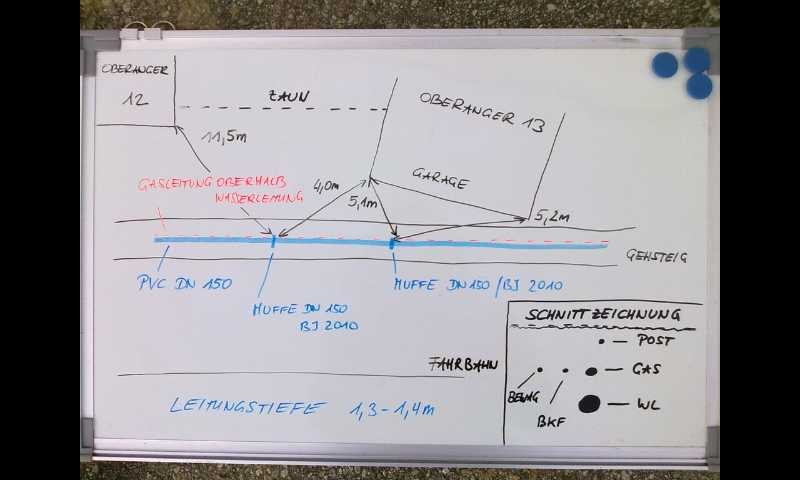 OBERANGER
12
ZAUN
OBERANGER 13
11,5m
GARAGE
GASLEITUNG OBERHALB
WASSERLEITUNG
4,0m
5,1m
5,2m
GEHSTEIG
PVC DN 150
MUFFE DN 150 / BJ 2010
MUFFE DN 150
BJ 2010
SCHNITTZEICHNUNG
POST
GAS
BEWAG
BKF
WL
FAHRBAHN
LEITUNGSTIEFE 1,3-1,4m